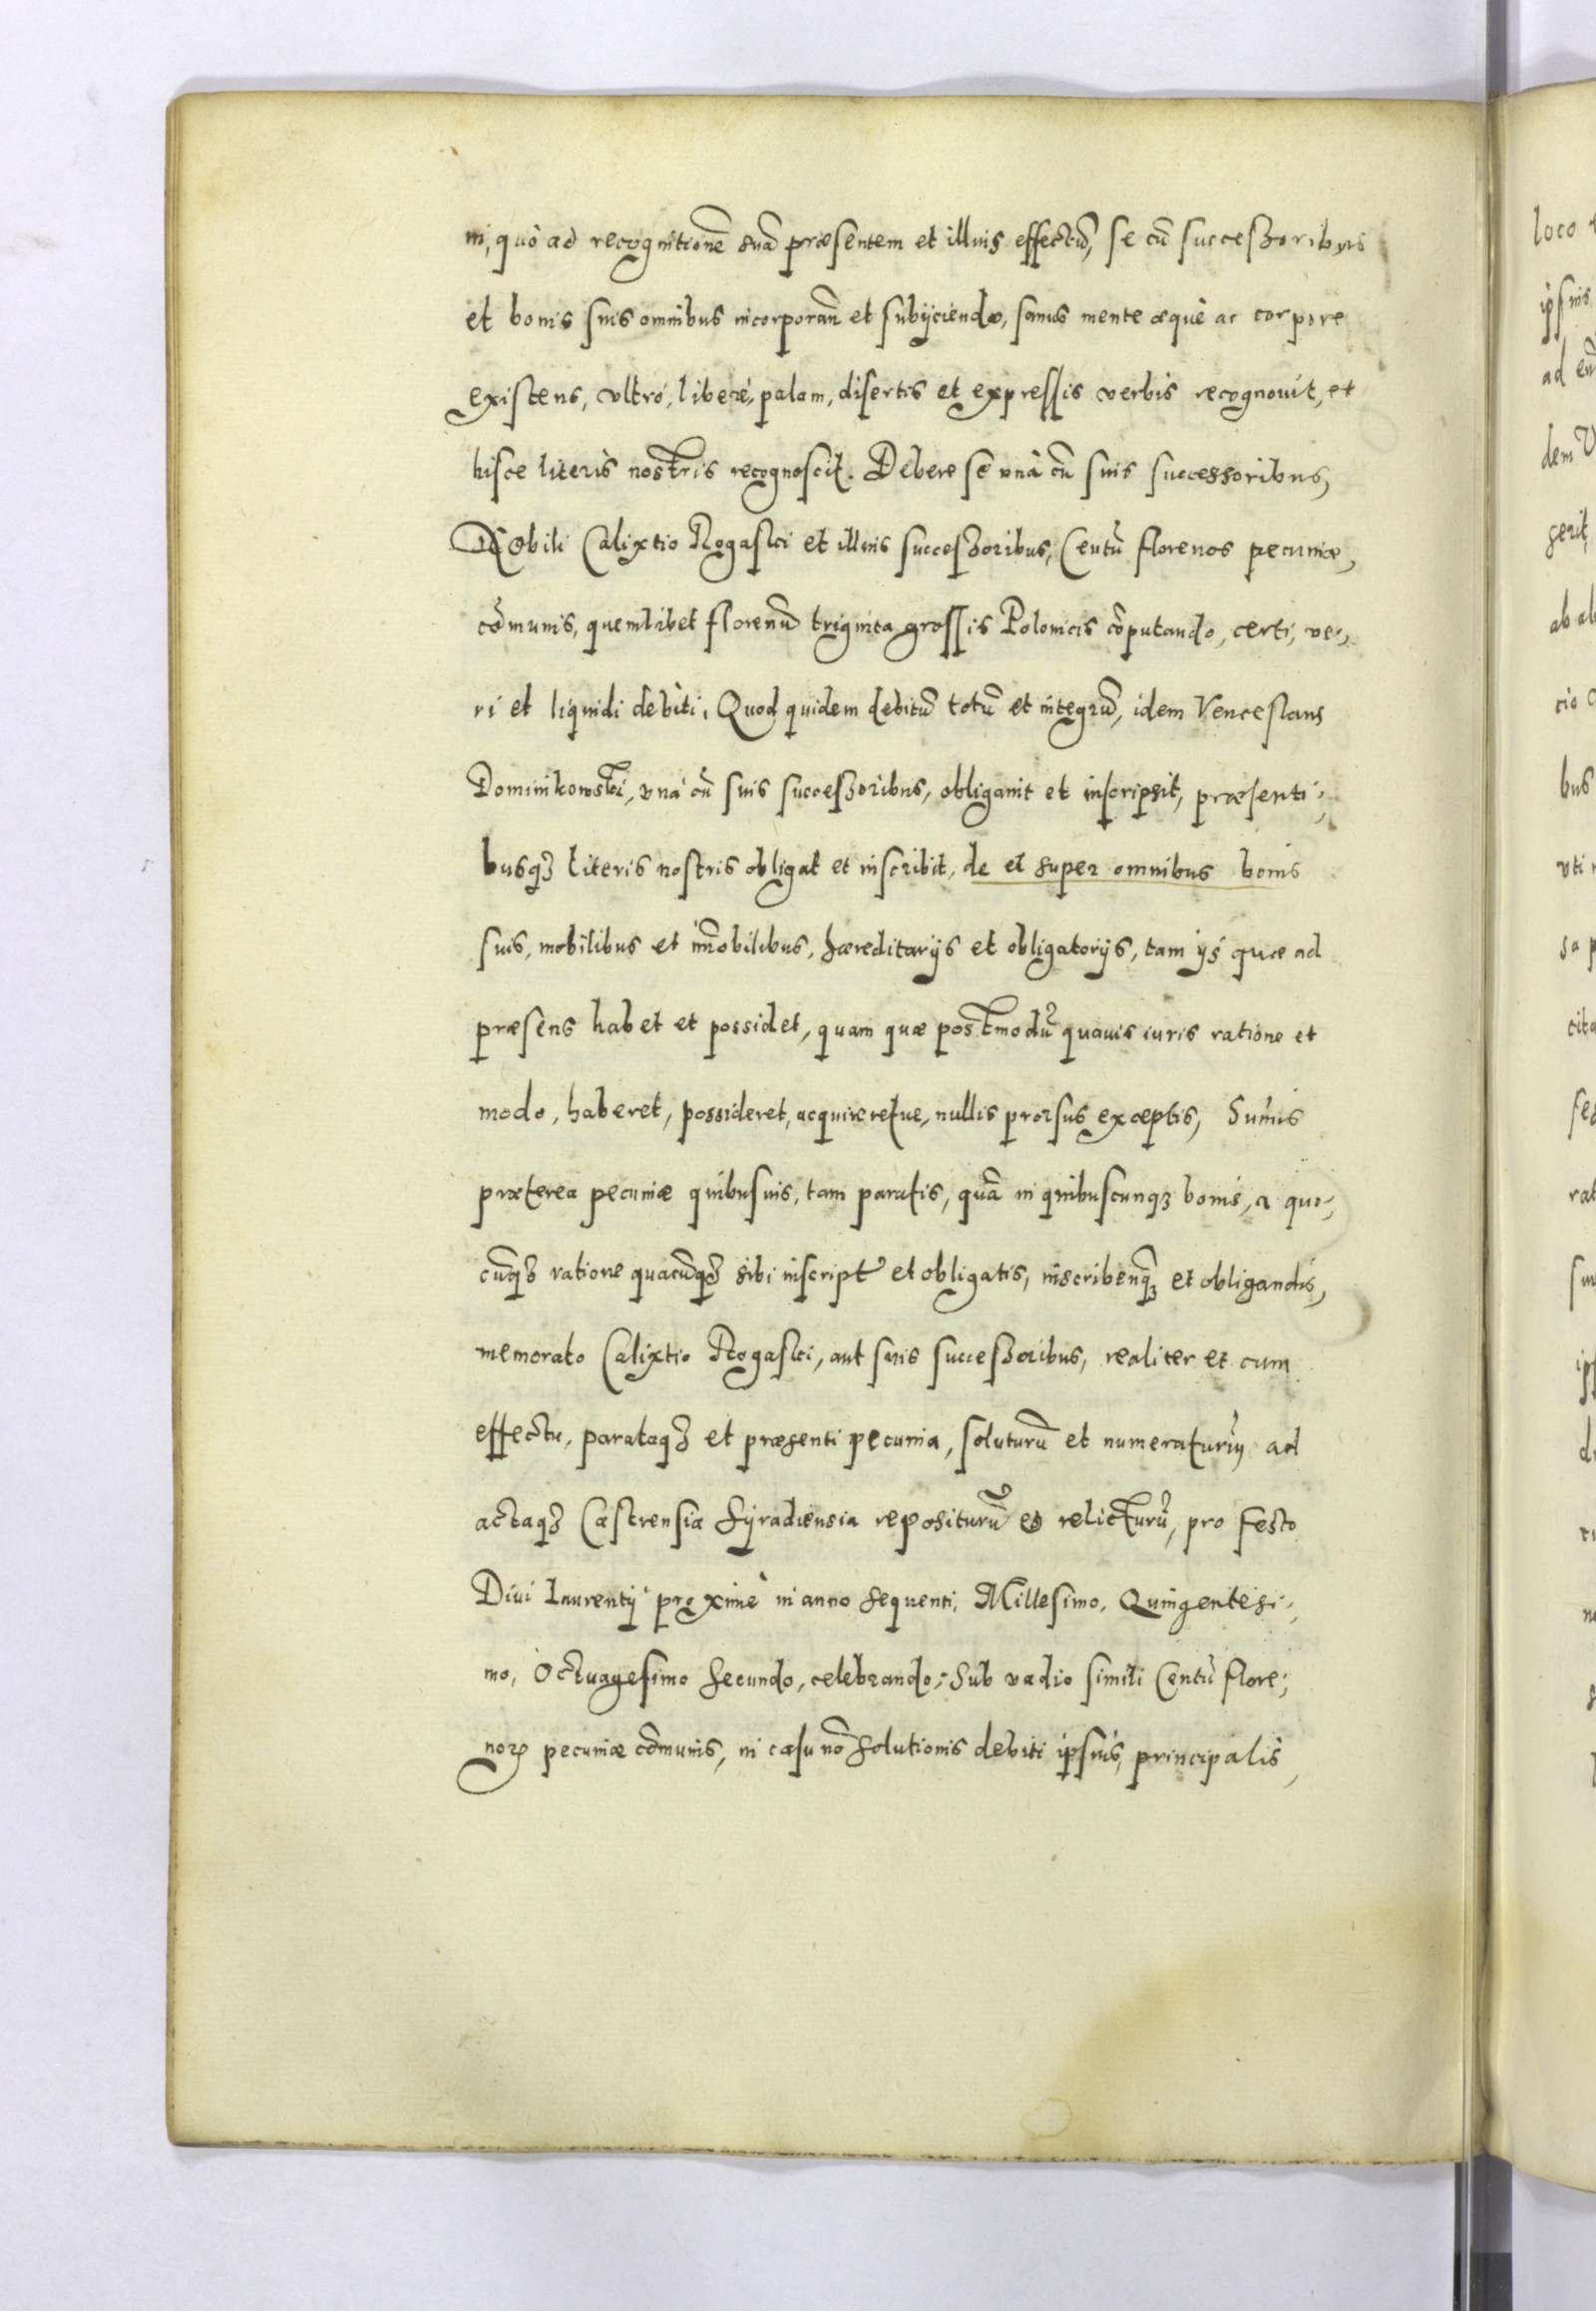 ni, quò ad recognitionē suā præsentem et illius effectū, se cū successoribus
et bonis suis omnibus incorporañ et subijciendo, sanus mente æquè ac corpore
existens, vltrò, liberè, palam, disertis et expressis verbis recognouit, et
hisce literis nostris recognoscit. Debere se vnà cū suis successoribus,
Nobili Calixtio Rogaski et illius successoribus, Centū florenos pecuniæ,
cōmunis, quemlibet florenū triginta grossis Polonicis cōputando, certi, ve-
ri et liquidi debiti, Quod quidem debitū totū et integrū, idem Venceslaus
Dominikowski, vnà cū suis successoribus, obligauit et inscripsit, præsenti-
busqȝ literis nostris obligat et inscribit, de et super omnibus bonis
suis, mobilibus et im̃obilibus, hæreditarijs et obligatorijs, tam ijs quæ ad
præsens habet et possidet, quam quæ postmodū quauis iuris ratione et
modo, haberet, possideret, acquireretue, nullis prorsus exceptis, Sum̃is
præterea pecuniæ quibusuis, tam paratis, quā in quibuscunqȝ bonis, a quo-
cūqȝ ratione quacūqȝ sibi inscript et obligatis, inscribenqȝ et obligandis,
memorato Calixtio Rogaski, aut suis successoribus, realiter et cum
effectu, parataqȝ et præsenti pecunia, soluturū et numeraturū ad
actaqȝ Castrensia Syradiensia repositurū et relicturū, pro festo
Diui Laurentij proximè in anno sequenti, Millesimo, Quingentesi-
mo, Octuagesimo secundo, celebrando; Sub vadio simili Centū flore-
noꝝ pecuniæ cōmunis, in casu nō solutionis debiti ipsius, principalis,
loco
ipsius
ad eū
dem V
gerit,
ab al
cio
bus
vti
sa p
cita
rat